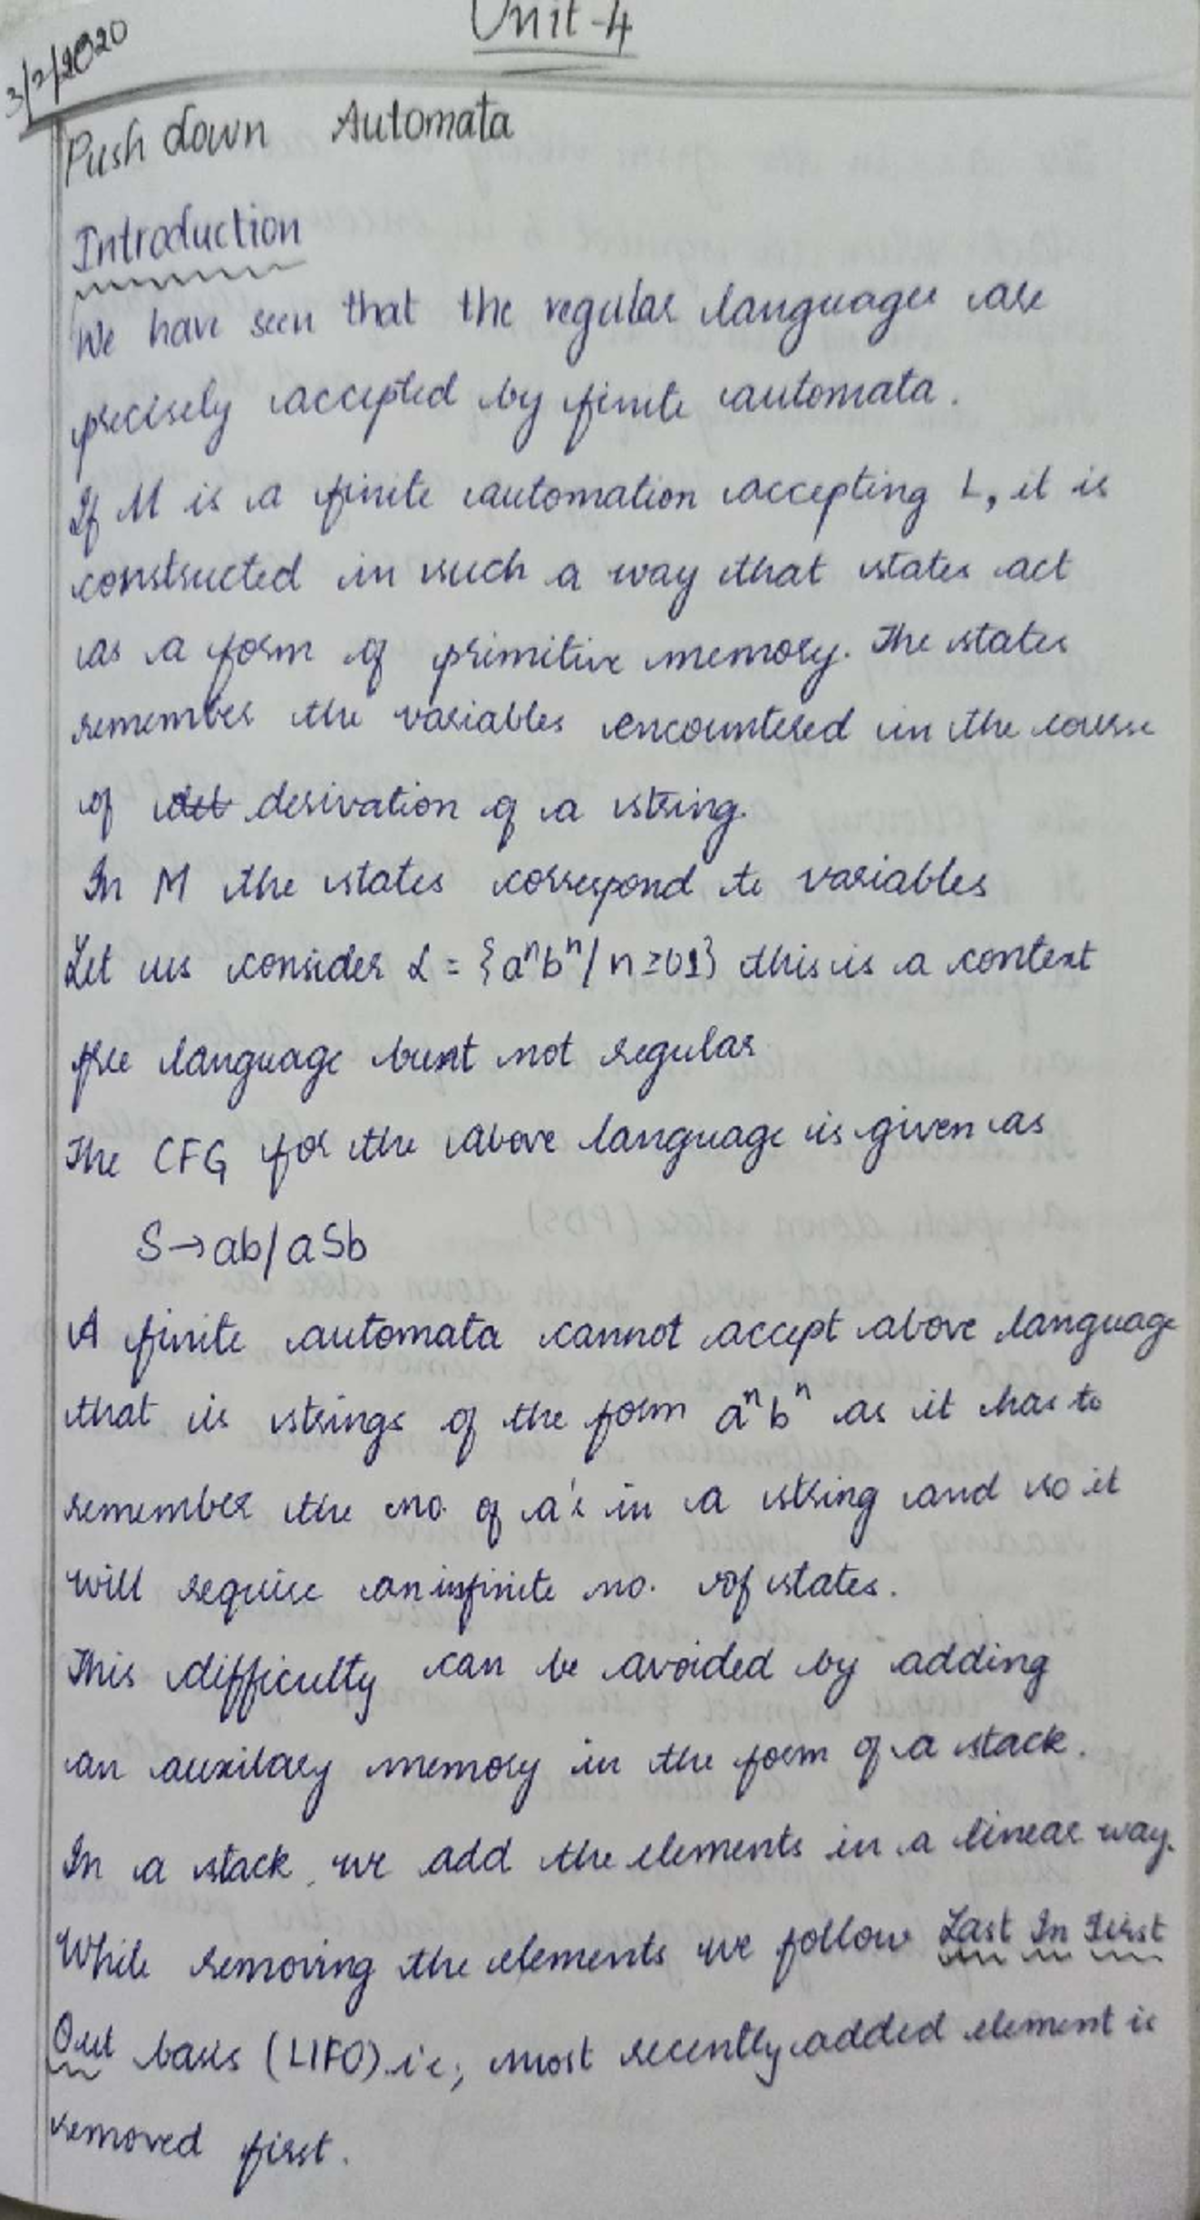 Unit-4
3/2/2020
Push down Automata
Introduction
We have seen that the regular languages are
precisely accepted by finite automata.
If M is a finite automation accepting L, it is
constructed in such a way that states act
as a form of primitive memory. The states
remember the variables encountered in the course
of derivation of a string.
In M the states correspond to variables
Let us consider L = {aⁿbⁿ/ n≥1} this is a context
free language but not regular
The CFG for the above language is given as
S→ab/aSb
A finite automata cannot accept above language
that is strings of the form aⁿbⁿ as it has to
remember the no. of a's in a string and so it
will require an infinite no. of states.
This difficulty can be avoided by adding
an auxilary memory in the form of a stack.
In a stack we add the elements in a linear way.
While removing the elements we follow Last In First
Out basis (LIFO) i.e; most recently added element is
removed first.